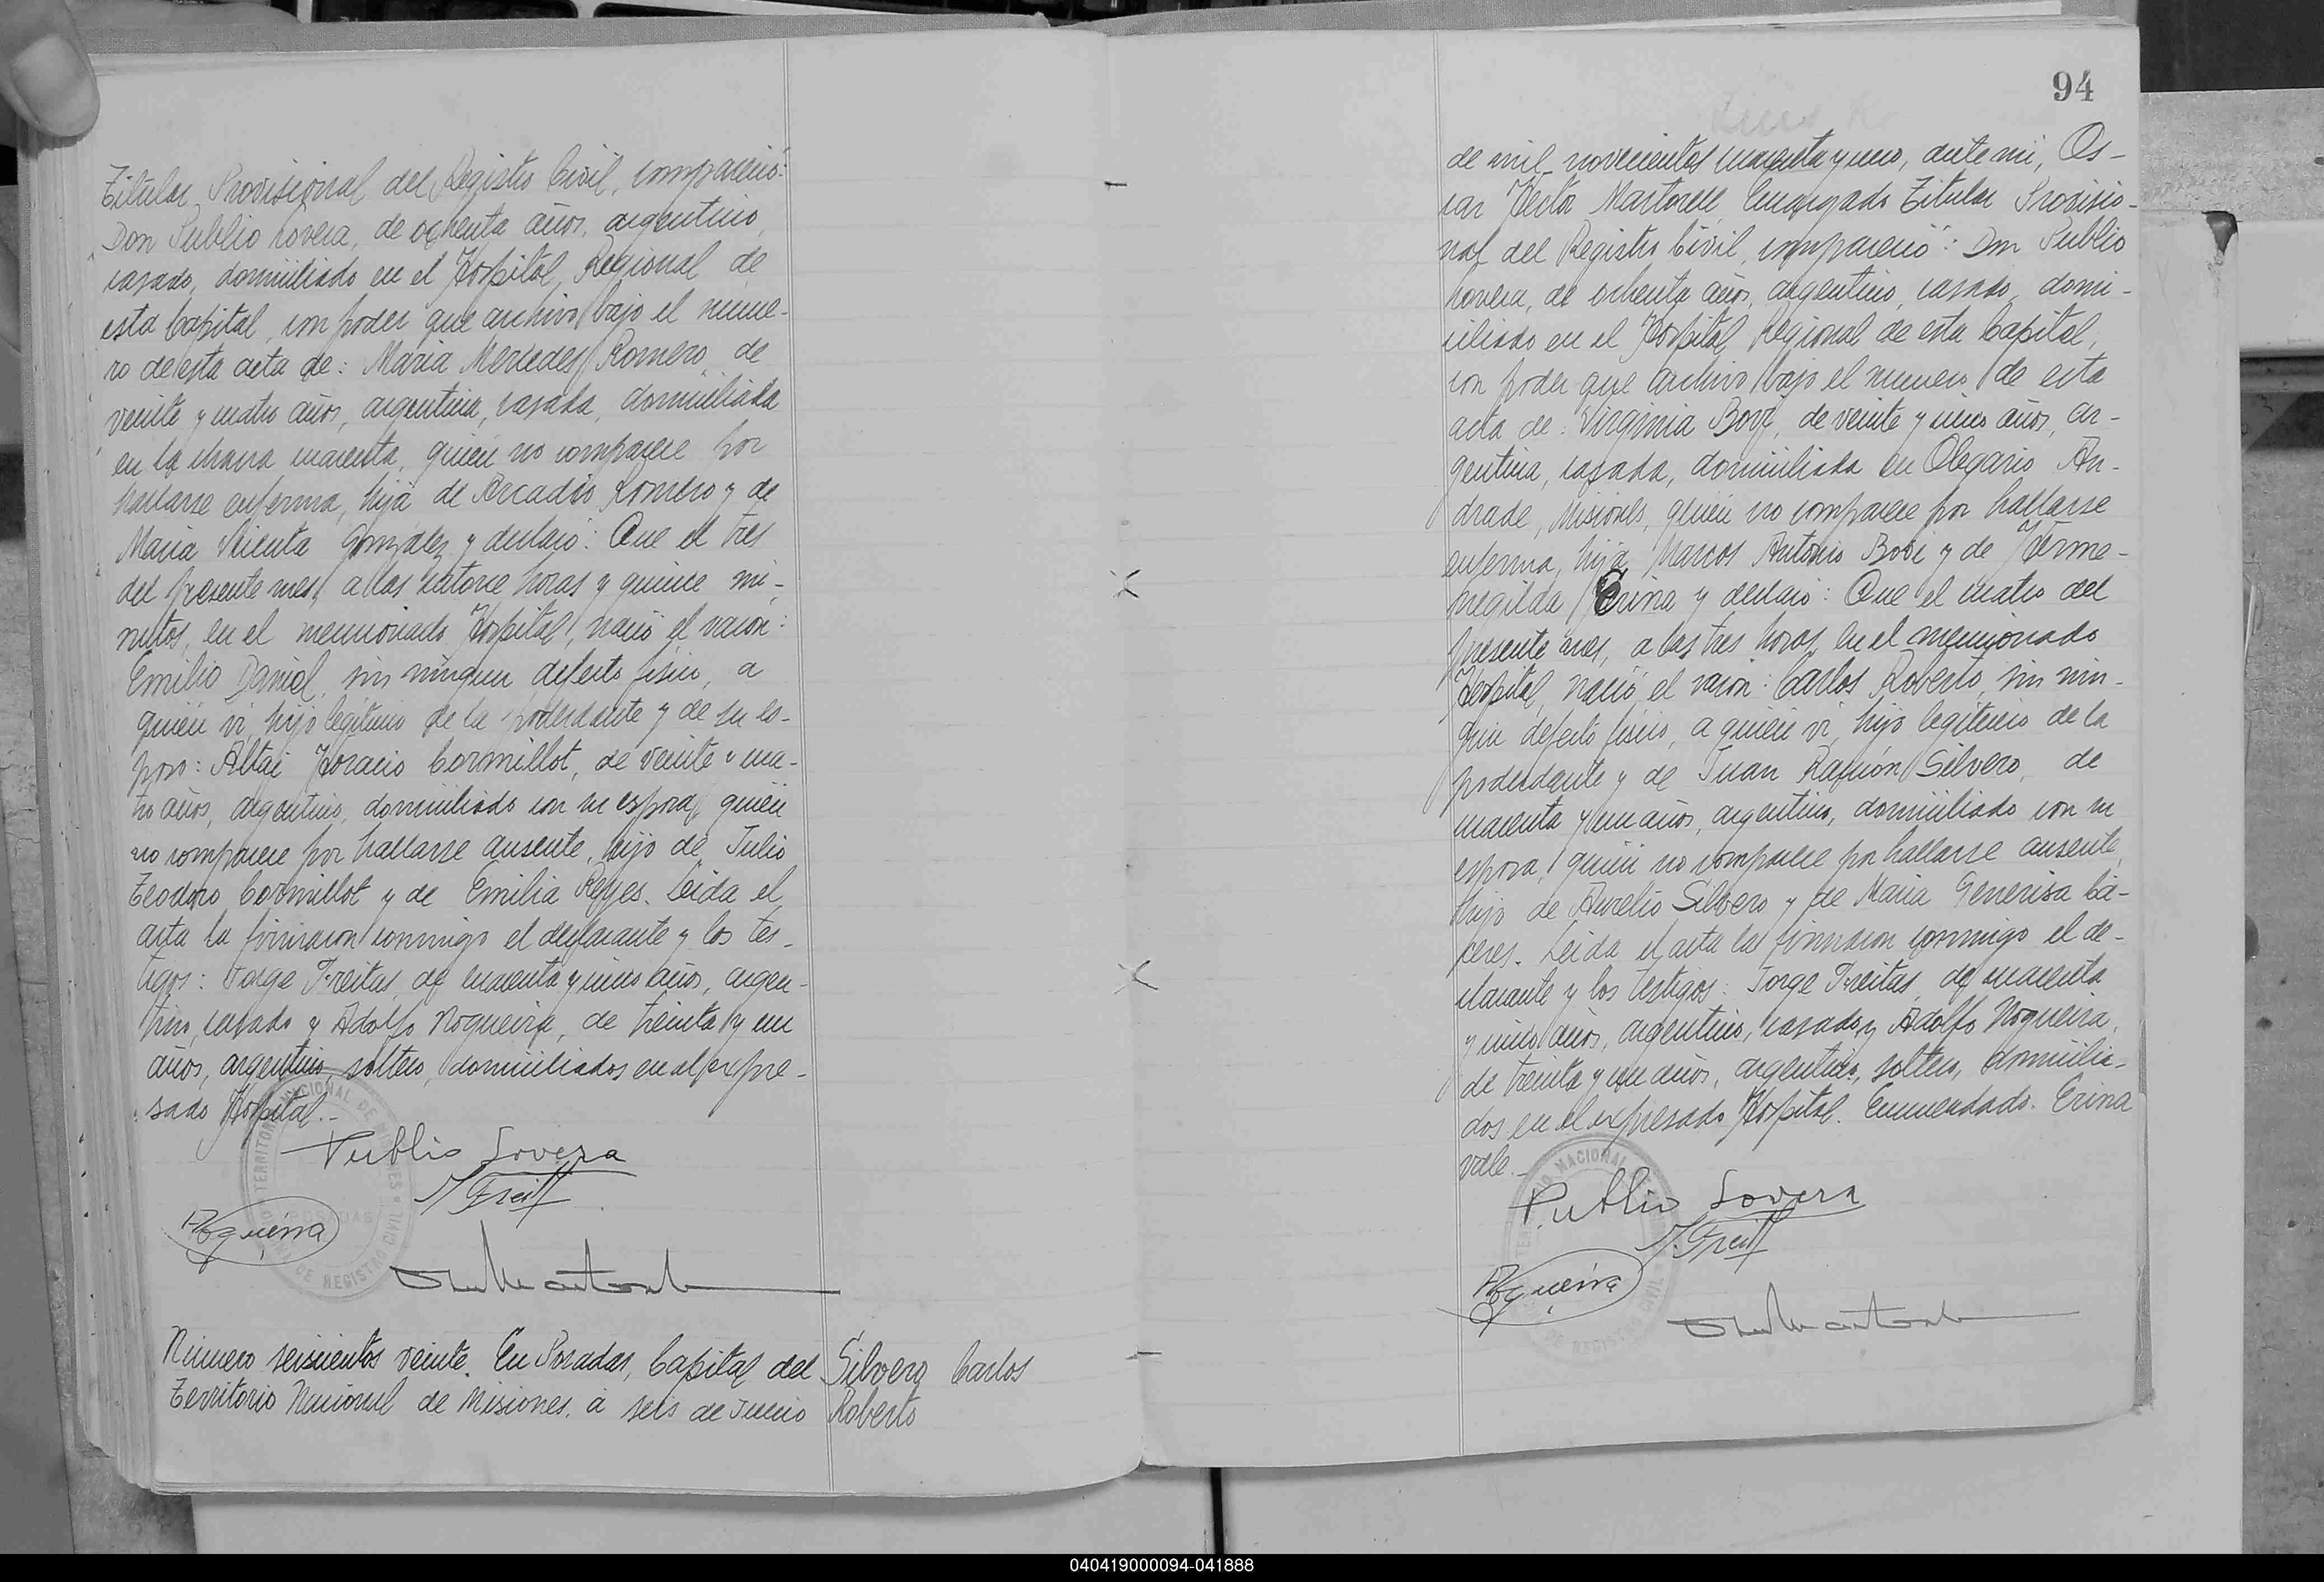 Titular Provisional del Registro Civil, compareció:
Don Publio Lovera, de ochenta años, argentino,
casado, domiciliado en el Hospital Regional de
esta Capital, con poder que archivo bajo el núme-
ro de esta acta de: María Mercedes Romero, de
veinte y cuatro años, argentina, casada, domiciliada
en la chacra cuarenta, quién no comparece por
hallarse enferma, hija de Arcadio Romero y de
María Vicenta González y declaró: Que el tres
del presente mes, a las catorce horas y quince mi-
nutos, en el mencionado Hospital, nació el varón:
Emilio Daniel, sin ningun defecto físico, a
quién vi, hijo legítimo de la poderdante y de su es-
poso: Altai Horacio Cormillot, de veinte y cua-
tro años, argentino, domiciliado con su esposa, quién
no comparece por hallarse ausente, hijo de Julio
Teodoro Cormillot y de Emilia Reyes. Leída el
acta la firmaron conmigo el declarante y los tes-
tigos: Jorge Freitas, de cuarenta y cinco años, argen-
tino, casado y Adolfo Nogueira, de treinta y un
años, argentino, soltero, domiciliados en el expre-
sado Hospital.-
Publio Lovera
J Freit
ANogueira
TERRITORIO NACIONAL DE MISIONES
DE REGISTRO CIVIL
Número seiscientos veinte. En Posadas, Capital del
Territorio Nacional de Misiones, a seis de Junio
Silvero Carlos
Roberto
94
de mil novecientos cuarenta y uno, ante mi, Os-
car Héctor Martorell, Encargado Titular Provisio-
nal del Registro Civil, compareció: Don Publio
Lovera, de ochenta años, argentino, casado, domi-
ciliado en el Hospital Regional de esta Capital,
con poder que archivo bajo el numero de esta
acta de: Virginia Bovi, de veinte y cinco años, ar-
gentina, casada, domiciliada en Olegario An-
drade, Misiones, quién no comparece por hallarse
enferma, hija Marcos Antonio Bovi y de Herme-
negilda Erina y declaró: Que el cuatro del
presente mes, a las tres horas, en el mencionado
Hospital, nació el varón: Carlos Roberto, sin nin-
gún defecto físico, a quién vi, hijo legítimo de la
poderdante y de Juan Ramón Silvero, de
cuarenta y un años, argentino, domiciliado con su
esposa, quién no comparece por hallarse ausente,
hijo de Aurelio Silvero y de María Generisa Cá-
ceres. Leída el acta la firmaron conmigo el de-
clarante y los testigos: Jorge Freitas, de cuarenta
y cinco años, argentino, casado y Adolfo Nogueira,
de treinta y un años, argentino, soltero, domicilia-
dos en el expresado Hospital. Enmendado. Erina
vale.-
Publio Lovera
J. Freit
ANogueira
NACIONAL
DE REGISTRO CIVIL
040419000094-041888